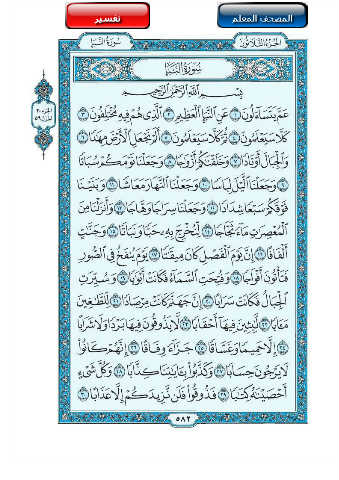 المصحف المعلم
تفسير
الجزء الثلاثون
سورة النبإ
سُورَةُ النَّبَإِ
بِسْمِ اللَّهِ الرَّحْمَٰنِ الرَّحِيمِ
عَمَّ يَتَسَاءَلُونَ ١ عَنِ النَّبَإِ الْعَظِيمِ ٢ الَّذِي هُمْ فِيهِ مُخْتَلِفُونَ ٣
كَلَّا سَيَعْلَمُونَ ٤ ثُمَّ كَلَّا سَيَعْلَمُونَ ٥ أَلَمْ نَجْعَلِ الْأَرْضَ مِهَادًا ٦
وَالْجِبَالَ أَوْتَادًا ٧ وَخَلَقْنَاكُمْ أَزْوَاجًا ٨ وَجَعَلْنَا نَوْمَكُمْ سُبَاتًا
٩ وَجَعَلْنَا اللَّيْلَ لِبَاسًا ١٠ وَجَعَلْنَا النَّهَارَ مَعَاشًا ١١ وَبَنَيْنَا
فَوْقَكُمْ سَبْعًا شِدَادًا ١٢ وَجَعَلْنَا سِرَاجًا وَهَّاجًا ١٣ وَأَنْزَلْنَا مِنَ
الْمُعْصِرَاتِ مَاءً ثَجَّاجًا ١٤ لِنُخْرِجَ بِهِ حَبًّا وَنَبَاتًا ١٥ وَجَنَّاتٍ
أَلْفَافًا ١٦ إِنَّ يَوْمَ الْفَصْلِ كَانَ مِيقَاتًا ١٧ يَوْمَ يُنْفَخُ فِي الصُّورِ
فَتَأْتُونَ أَفْوَاجًا ١٨ وَفُتِحَتِ السَّمَاءُ فَكَانَتْ أَبْوَابًا ١٩ وَسُيِّرَتِ
الْجِبَالُ فَكَانَتْ سَرَابًا ٢٠ إِنَّ جَهَنَّمَ كَانَتْ مِرْصَادًا ٢١ لِلطَّاغِينَ
مَآبًا ٢٢ لَابِثِينَ فِيهَا أَحْقَابًا ٢٣ لَا يَذُوقُونَ فِيهَا بَرْدًا وَلَا شَرَابًا
٢٤ إِلَّا حَمِيمًا وَغَسَّاقًا ٢٥ جَزَاءً وِفَاقًا ٢٦ إِنَّهُمْ كَانُوا
لَا يَرْجُونَ حِسَابًا ٢٧ وَكَذَّبُوا بِآيَاتِنَا كِذَّابًا ٢٨ وَكُلَّ شَيْءٍ
أَحْصَيْنَاهُ كِتَابًا ٢٩ فَذُوقُوا فَلَنْ نَزِيدَكُمْ إِلَّا عَذَابًا ٣٠
٥٨٢